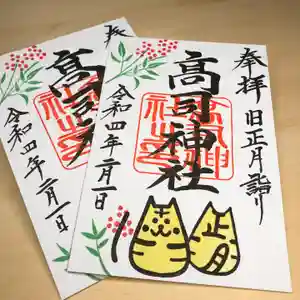 奉拝
旧正月詣り
高司神社
令和四年二月一日
正月
奉
髙司神
令和四年二月一日